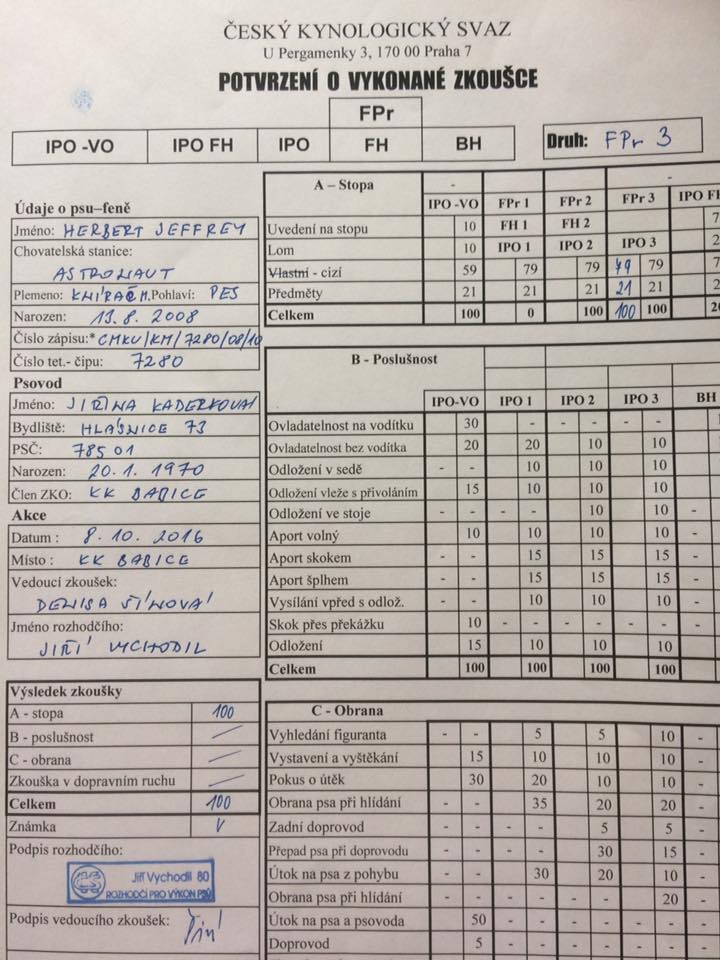 ČESKÝ KYNOLOGICKÝ SVAZ
U Pergamenky 3, 170 00 Praha 7
POTVRZENÍ O VYKONANÉ ZKOUŠCE
FPr
IPO -VO IPO FH IPO FH BH
Druh: FPr 3
Údaje o psu–feně
Jméno: HERBERT JEFFREY
Chovatelská stanice:
ASTRONAUT
Plemeno: KNÍRAČ M. Pohlaví: PES
Narozen: 13.8. 2008
Číslo zápisu:* CMKU/KM/7280/08/10
Číslo tet.- čipu: 7280
Psovod
Jméno: JIŘINA KADERKOVÁ
Bydliště: HLÁSNICE 73
PSČ: 785 01
Narozen: 20.1. 1970
Člen ZKO: KK BABICE
Akce
Datum : 8. 10. 2016
Místo : KK BABICE
Vedoucí zkoušek:
DENISA
Jméno rozhodčího:
JIŘÍ VYCHODIL
Výsledek zkoušky
A - stopa 100
B - poslušnost
C - obrana
Zkouška v dopravním ruchu
Celkem 100
Známka V
Podpis rozhodčího:
Jiří Vychodil 80
ROZHODČÍ PRO VÝKON PSŮ
Podpis vedoucího zkoušek:
A – Stopa - -
IPO -VO FPr 1 FPr 2 FPr 3 IPO FH
Uvedení na stopu 10 FH 1 FH 2 7
Lom 10 IPO 1 IPO 2 IPO 3 2
Vlastní - cizí 59 79 79 79 79 7
Předměty 21 21 21 21 21 2
Celkem 100 0 100 100 100 20
B - Poslušnost
IPO-VO IPO 1 IPO 2 IPO 3 BH
Ovladatelnost na vodítku 30 - - - - - -
Ovladatelnost bez vodítka 20 20 10 10
Odložení v sedě - - 10 10 10
Odložení vleže s přivoláním 15 10 10 10
Odložení ve stoje - - - - 10 10 -
Aport volný 10 10 10 10 -
Aport skokem 15 15 15 -
Aport šplhem 15 15 15 -
Vysílání vpřed s odlož. 10 10 10 -
Skok přes překážku 10 - - - - - - -
Odložení 15 10 10 10
Celkem 100 100 100 100
C - Obrana
Vyhledání figuranta - - 5 5 10 -
Vystavení a vyštěkání 15 10 10 10 -
Pokus o útěk 30 20 10 10 -
Obrana psa při hlídání - - 35 20 20 -
Zadní doprovod - - - - 5 5 -
Přepad psa při doprovodu - - - - 30 15 -
Útok na psa z pohybu - - 30 20 10 -
Obrana psa při hlídání - - - - - - 20 -
Útok na psa a psovoda 50 - - - - - - -
Doprovod 5 - - - - - - -